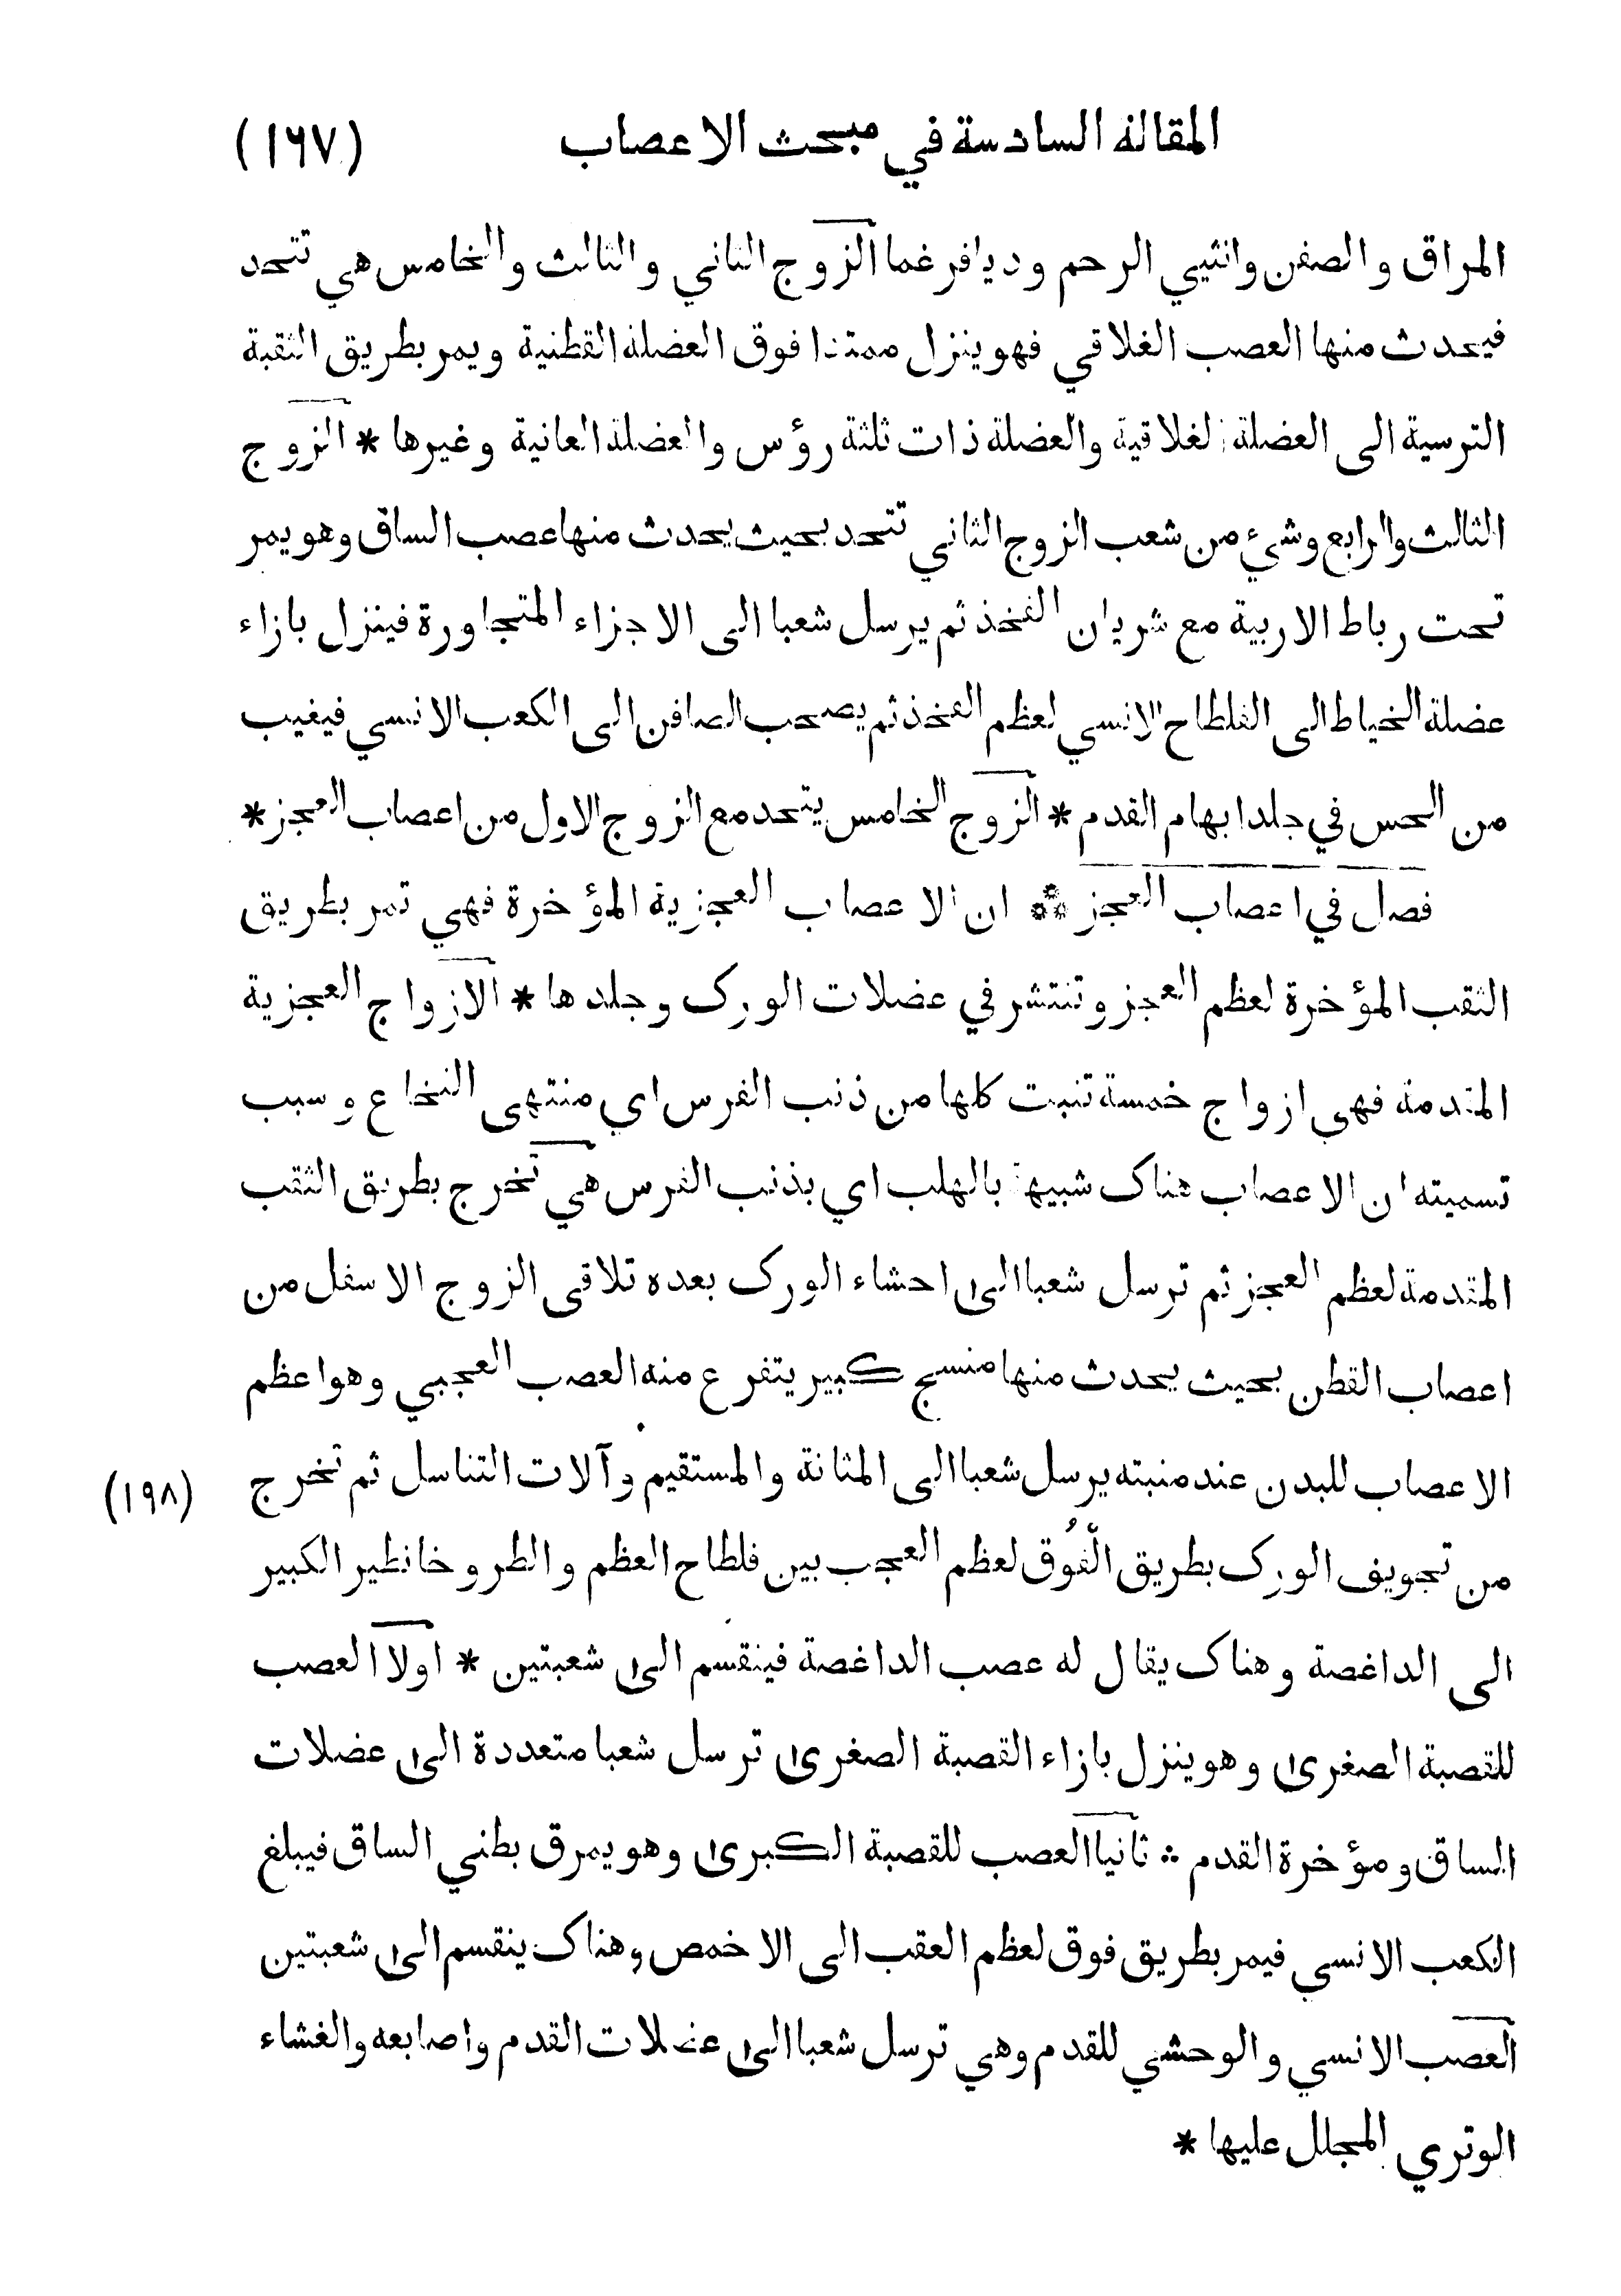 المقالة السادسة في مبحث الاعصاب (١٦٧)
المراق والصفن وانثيي الرحم وديافرغما الزوج الثاني والثالث والخامس هي تتحد
فيحدث منها العصب الغلاقي فهو ينزل ممتدا فوق العضلة القطنية ويمر بطريق الثقبة
الترسية الى العضلة الغلاقية والعضلة ذات ثلثة رؤس والعضلة العانية وغيرها * الزوج
الثالث والرابع وشيء من شعب الزوج الثاني تتحد بحيث يحدث منها عصب الساق وهو يمر
تحت رباط الاربية مع شريان الفخذ ثم يرسل شعبا الى الاجزاء المتجاورة فينزل بازاء
عضلة الخياط الى الفلطاح الانسي لعظم الفخذ ثم يصحب الصافن الى الكعب الانسي فيغيب
من الحس في جلد ابهام القدم * الزوج الخامس يتحد مع الزوج الاول من اعصاب العجز *
فصل في اعصاب العجز ⁂ ان الاعصاب العجزية المؤخرة فهي تمر بطريق
الثقب المؤخرة لعظم العجز وتنتشر في عضلات الورك وجلدها * الازواج العجزية
المقدمة فهي ازواج خمسة تنبت كلها من ذنب الفرس اي منتهى النخاع وسبب
تسميته ان الاعصاب هناك شبيهة بالهلب اي بذنب الفرس هي تخرج بطريق الثقب
المقدمة لعظم العجز ثم ترسل شعبا الى احشاء الورك بعده تلاقي الزوج الاسفل من
اعصاب القطن بحيث يحدث منها منسج كبير يتفرع منه العصب العجبي وهو اعظم
الاعصاب للبدن عند منبته يرسل شعبا الى المثانة والمستقيم وآلات التناسل ثم تخرج (١٩٨)
من تجويف الورك بطريق الفُوق لعظم العجب بين فلطاح العظم والطروخانطير الكبير
الى الداغصة وهناك يقال له عصب الداغصة فينقسم الى شعبتين * اولا العصب
للقصبة الصغرى وهو ينزل بازاء القصبة الصغرى ترسل شعبا متعددة الى عضلات
الساق ومؤخرة القدم * ثانيا العصب للقصبة الكبرى وهو يمرق بطني الساق فيبلغ
الكعب الانسي فيمر بطريق فوق لعظم العقب الى الاخمص وهناك ينقسم الى شعبتين
العصب الانسي والوحشي للقدم وهي ترسل شعبا الى عضلات القدم واصابعه والغشاء
الوتري المجلل عليها *